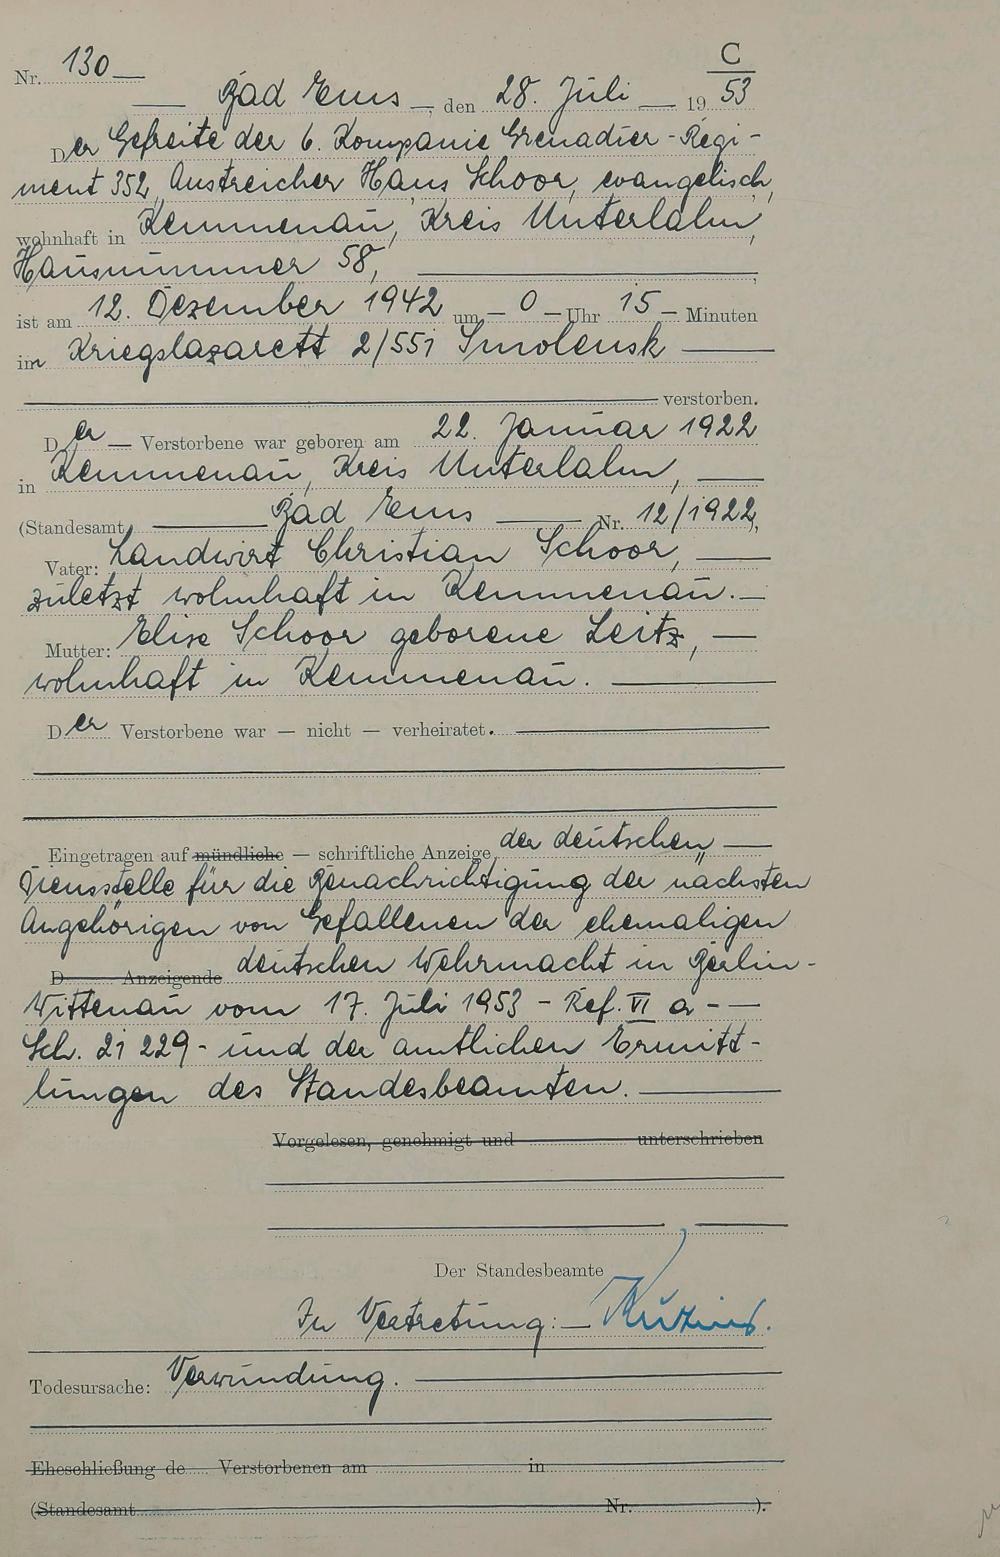 C
Nr. 130
Bad Ems, den 28. Juli 19 53
Der Gefreite der 6. Kompanie Grenadier-Regi-
ment 352, Anstreicher Hans Schoor, evangelisch,
wohnhaft in Kemmenau, Kreis Unterlahn,
Hausnummer 58,
ist am 12. Dezember 1942 um 0 Uhr 15 Minuten
im Kriegslazarett 2/551 Smolensk
verstorben.
Der Verstorbene war geboren am 22. Januar 1922
in Kemmenau, Kreis Unterlahn,
(Standesamt Bad Ems Nr. 12/1922,
Vater: Landwirt Christian Schoor,
zuletzt wohnhaft in Kemmenau.
Mutter: Elise Schoor geborene Leitz,
wohnhaft in Kemmenau.
Der Verstorbene war — nicht — verheiratet.
Eingetragen auf mündliche — schriftliche Anzeige der deutschen
Diensstelle für die Benachrichtigung der nächsten
Angehörigen von Gefallenen der ehemaligen
D Anzeigende deutschen Wehrmacht in Berlin-
Wittenau vom 17. Juli 1953 - Ref. VI a -
Sch. 21 229 - und der amtlichen Ermitt-
lungen des Standesbeamten.
Vorgelesen, genehmigt und unterschrieben
Der Standesbeamte
In Vertretung:
Todesursache: Verwundung.
Eheschließung de Verstorbenen am in
(Standesamt Nr. ).